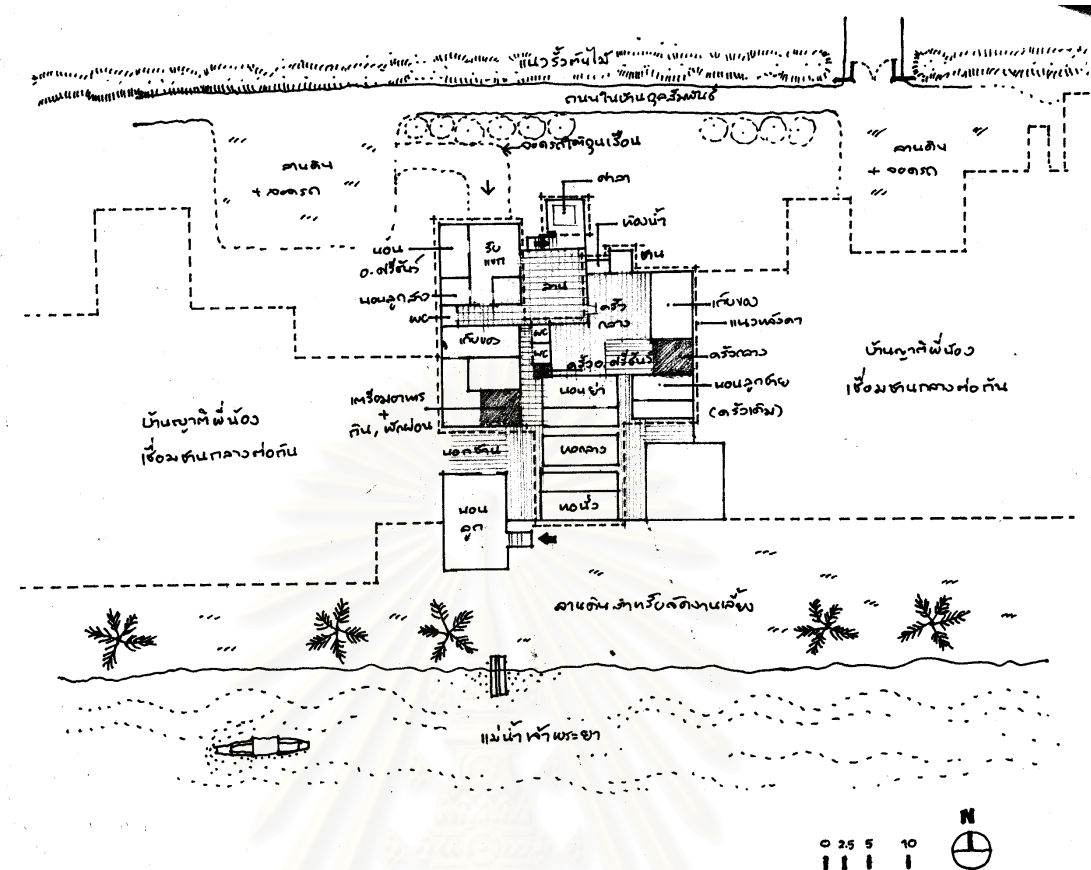 แนวรั้วต้นไม้
ถนนในบ้านกุลสัมพันธ์
จอดรถใต้ถุนเรือน
ลานดิน
+ จอดรถ
ลานดิน
+ จอดรถ
ศาลา
ห้องน้ำ
ชาน
ห้อง
อ.ศรีชันว์
รับ
แขก
ลาน
นอนลูกสาว
WC
ครัว
กลาง
เก็บของ
แนวหลังคา
เก็บของ
WC
WC
ครัวกลาง
ครัว อ.ศรีชันว์
นอนย่า
นอนลูกชาย
(ครัวเดิม)
เตรียมอาหาร
+
กิน, พักผ่อน
บ้านญาติพี่น้อง
เชื่อมชานกลางต่อกัน
บ้านญาติพี่น้อง
เชื่อมชานกลางต่อกัน
นอกชาน
หอกลาง
หอนั่ง
นอน
ลูก
ลานดินสำหรับจัดงานเลี้ยง
แม่น้ำเจ้าพระยา
N
0 2.5 5 10